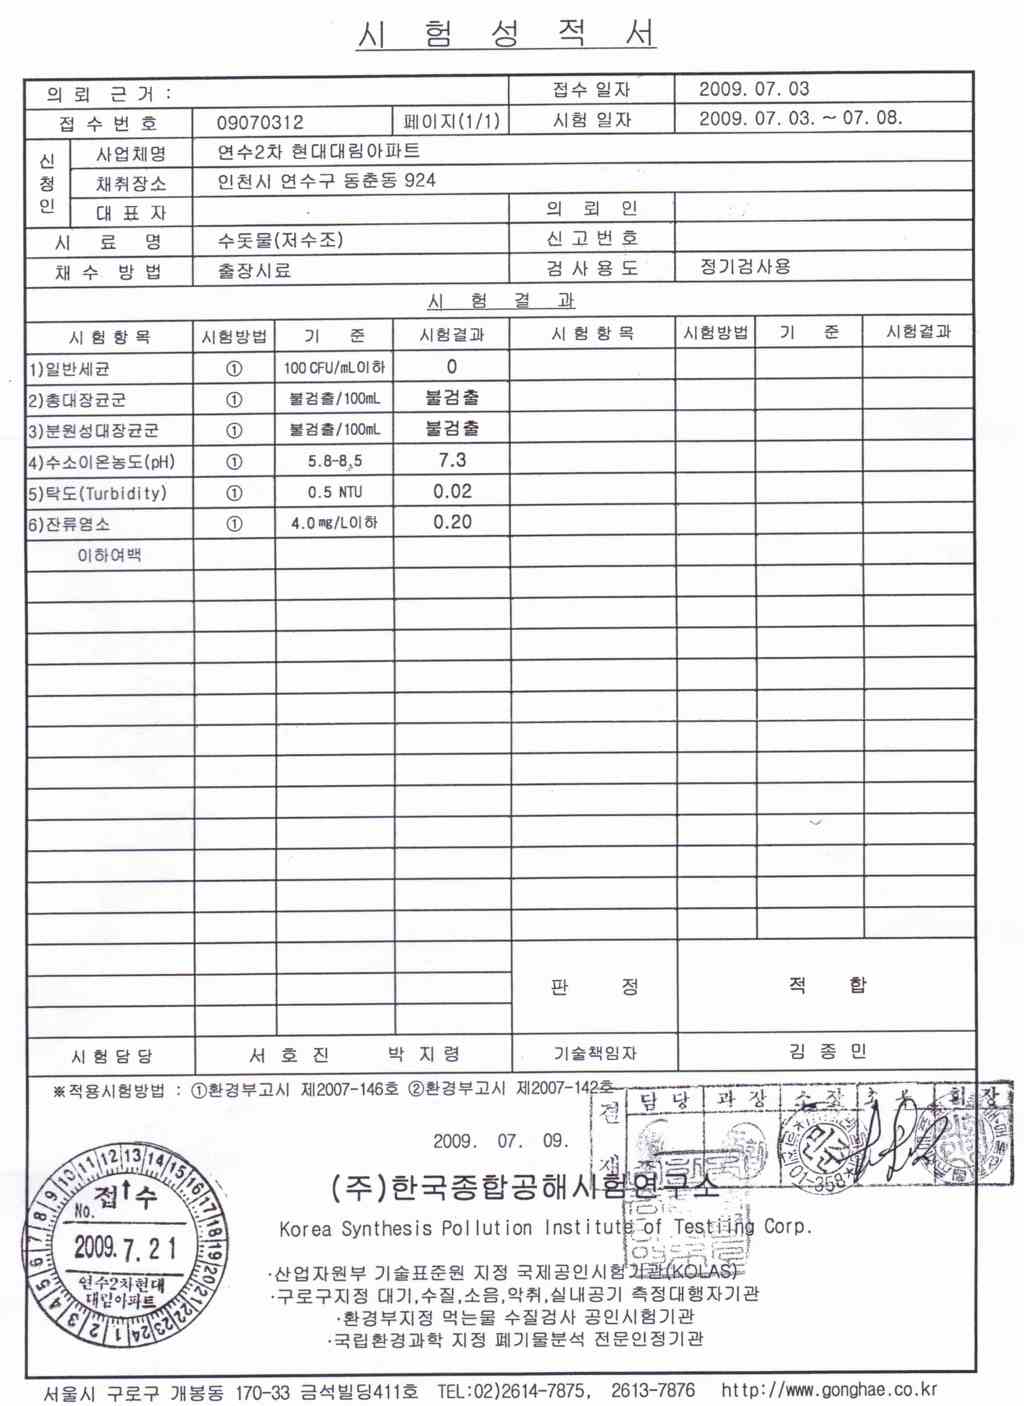 시 험 성 적 서
의 뢰 근 거 : 접수 일자 2009. 07. 03
접 수 번 호 09070312 페이지(1/1) 시험 일자 2009. 07. 03. ~ 07. 08.
신청인 사업체명 연수2차 현대대림아파트
채취장소 인천시 연수구 동춘동 924
대 표 자 의 뢰 인
시 료 명 수돗물(저수조) 신 고 번 호
채 수 방 법 출장시료 검 사 용 도 정기검사용
시 험 결 과
시 험 항 목 시험방법 기 준 시험결과 시 험 항 목 시험방법 기 준 시험결과
1)일반세균 ① 100 CFU/mL이하 0
2)총대장균군 ① 불검출/100mL 불검출
3)분원성대장균군 ① 불검출/100mL 불검출
4)수소이온농도(pH) ① 5.8-8.5 7.3
5)탁도(Turbidity) ① 0.5 NTU 0.02
6)잔류염소 ① 4.0mg/L이하 0.20
이하여백
판 정 적 합
시 험 담 당 서 호 진 박 지 령 기술책임자 김 종 민
※적용시험방법 : ①환경부고시 제2007-146호 ②환경부고시 제2007-142호
결재 담 당 과 장 소 장 회 장
2009. 07. 09.
(주)한국종합공해시험연구소
Korea Synthesis Pollution Institute of Testing Corp.
·산업자원부 기술표준원 지정 국제공인시험기관(KOLAS)
·구로구지정 대기,수질,소음,악취,실내공기 측정대행자기관
·환경부지정 먹는물 수질검사 공인시험기관
·국립환경과학 지정 폐기물분석 전문인정기관
1 2 3 4 5 6 7 8 9 10 11 12 13 14 15 16 17 18 19 20 21 22 23 24
접 수
No.
2009. 7. 21
연수2차현대
대림아파트
서울시 구로구 개봉동 170-33 금석빌딩411호 TEL:02)2614-7875, 2613-7876 http://www.gonghae.co.kr